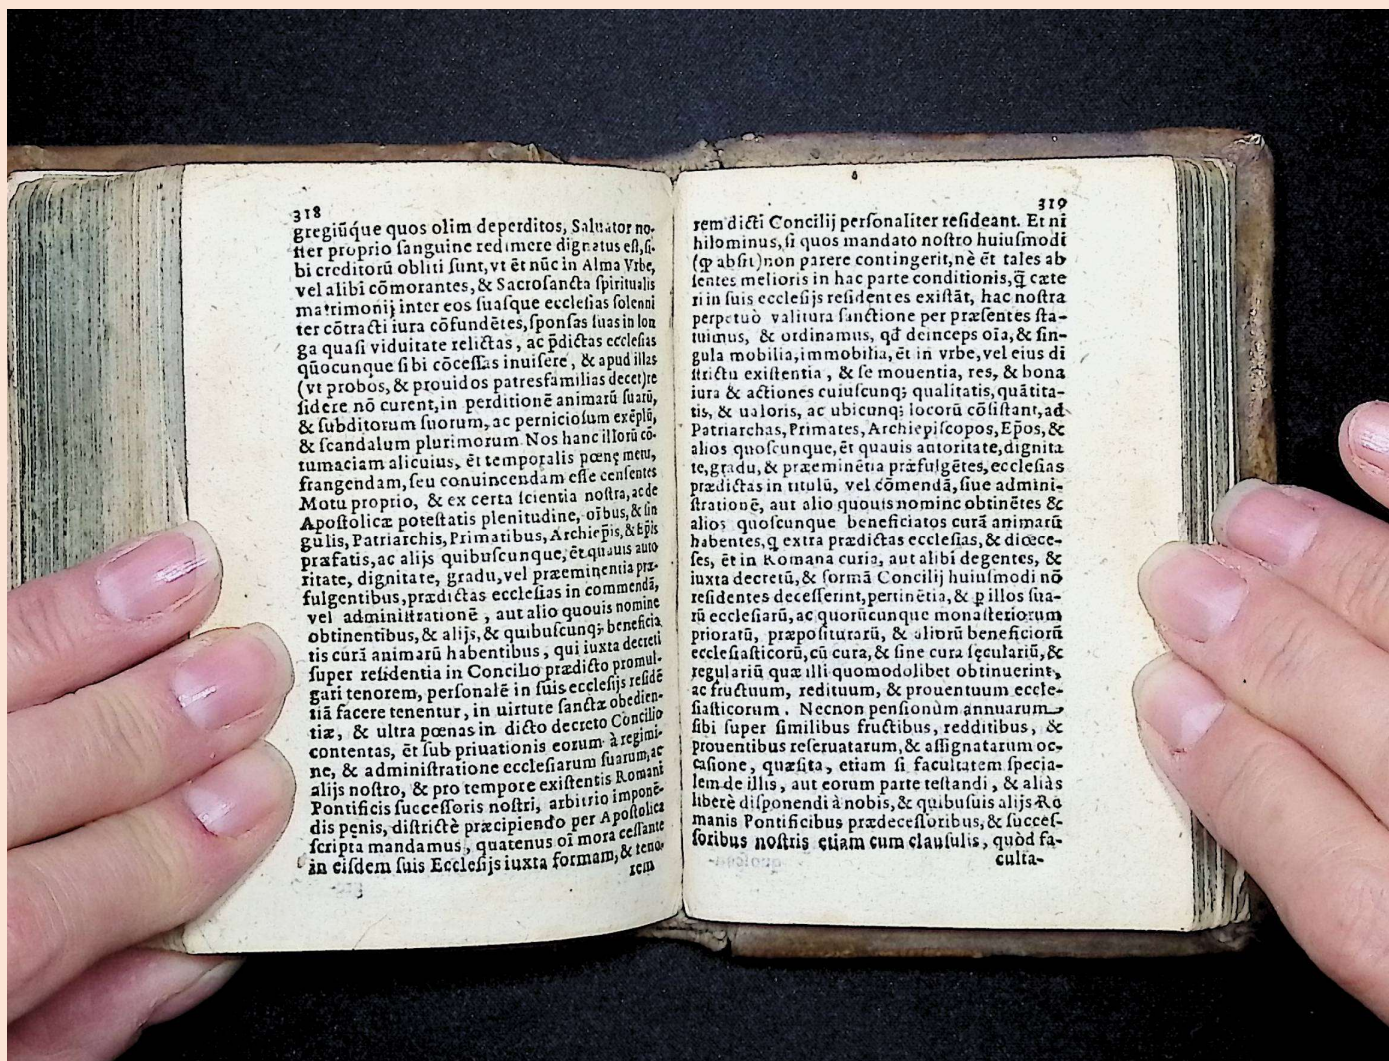 318
gregiūq́ue quos olim deperditos, Saluator no-
ſter proprio ſanguine redimere dignatus eſt, ſi-
bi creditorū obliti ſunt, vt ēt nūc in Alma Vrbe,
vel alibi cōmorantes, & Sacroſancta ſpiritualis
matrimonij inter eos ſuaſque ecclefias ſolenni
ter cōtracti iura cōfundētes, ſponſas ſuas in lon
ga quaſi viduitate relictas, ac p̄dictas eccleſias
qūocunque ſibi cōceſſas inuiſere, & apud illas
(vt probos, & prouidos patresfamilias decet)re
ſidere nō curent, in perditionē animarū ſuarū,
& ſubditorum ſuorum, ac pernicioſum exēplū,
& ſcandalum plurimorum. Nos hanc illorū cō-
tumaciam alicuius, ēt temporalis pœnę metu,
frangendam, ſeu conuincendam eſſe cenſentes
Motu proprio, & ex certa ſcientia noſtra, ac de
Apoſtolicæ poteſtatis plenitudine, oībus, & ſin
gulis, Patriarchis, Primatibus, Archiep̄is, & Ep̄is
præfatis, ac alijs quibuſcunque, ēt quauis auto
ritate, dignitate, gradu, vel præeminentia præ-
fulgentibus, prædictas eccleſias in commendā,
vel adminiſtrationē, aut alio quouis nomine
obtinentibus, & alijs, & quibuſcunq; beneficia
tis curā animarū habentibus, qui iuxta decreti
ſuper reſidentia in Concilio prædicto promul-
gari tenorem, perſonalē in ſuis eccleſijs reſidē
tiā facere tenentur, in uirtute ſanctæ obedien-
tiæ, & ultra pœnas in dicto decreto Concilio
contentas, ēt ſub priuationis eorum à regimi-
ne, & adminiſtratione eccleſiarum ſuarum, ac
alijs noſtro, & pro tempore exiſtentis Romani
Pontificis ſucceſſoris noſtri, arbitrio imponē-
dis pęnis, diſtrictè præcipiendo per Apoſtolica
ſcripta mandamus, quatenus oī mora ceſſante
in eiſdem ſuis Eccleſijs iuxta formam, & teno-
rem
319
rem dicti Concilij perſonaliter reſideant. Et ni
hilominus, ſi quos mandato noſtro huiuſmodi
(ꝙ abſit)non parere contingerit, nè ēt tales ab
ſentes melioris in hac parte conditionis, q̄ cæte
ri in ſuis eccleſijs reſidentes exiſtāt, hac noſtra
perpetuò valitura ſanctione per præſentes ſta-
tuimus, & ordinamus, qd̄ deinceps oīa, & ſin-
gula mobilia, immobilia, ēt in vrbe, vel eius di
ſtrictu exiſtentia, & ſe mouentia, res, & bona
iura & actiones cuiuſcunq; qualitatis, quātita-
tis, & ualoris, ac ubicunq; locorū cōſiſtant, ad
Patriarchas, Primates, Archiepiſcopos, Ep̄os, &
alios quoſcunque, ēt quauis autoritate, dignita
te, gradu, & præeminētia præfulgētes, eccleſias
prædictas in titulū, vel cōmendā, ſiue admini-
ſtrationē, aut alio quouis nomine obtinētes &
alios quoſcunque beneficiatos curā animarū
habentes, q extra prædictas eccleſias, & diœce-
ſes, ēt in Romana curia, aut alibi degentes, &
iuxta decretū, & formā Concilij huiuſmodi nō
reſidentes deceſſerint, pertinētia, & ꝑ illos ſua-
rū eccleſiarū, ac quorūcunque monaſteriorum
prioratū, præpoſiturarū, & aliorū beneficiorū
eccleſiaſticorū, cū cura, & ſine cura ſęculariū, &
regulariū quæ illi quomodolibet obtinuerint,
ac fructuum, redituum, & prouentuum eccle-
ſiaſticorum. Necnon penſionùm annuarum
ſibi ſuper ſimilibus fructibus, redditibus, &
prouentibus reſeruatarum, & aſſignatarum oc-
caſione, quæſita, etiam ſi facultatem ſpecia-
lem de illis, aut eorum parte teſtandi, & aliàs
liberè diſponendi à nobis, & quibuſuis alijs Ro
manis Pontificibus prædeceſſoribus, & ſucceſ-
ſoribus noſtris etiam cum clauſulis, quòd fa-
culta-